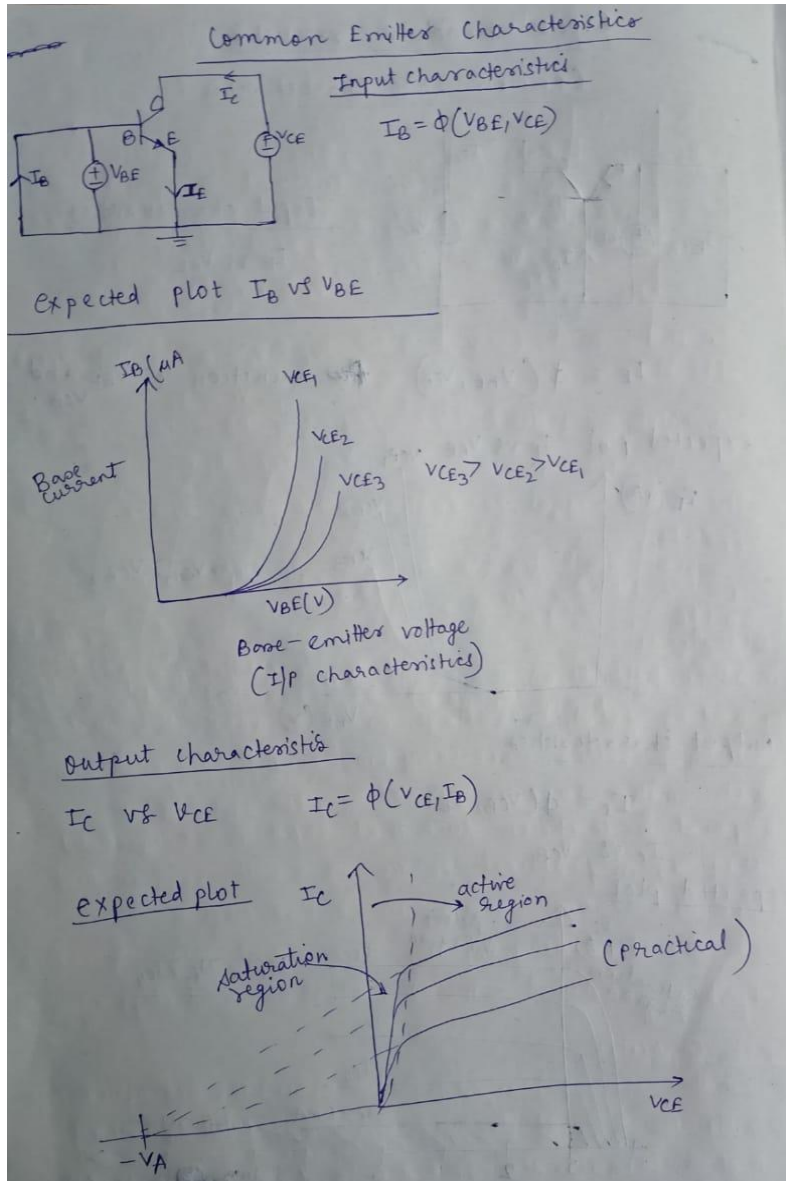 Common Emitter Characteristics
Input characteristics
IB = ϕ(VBE, VCE)
C
IC
B
E
VCE
IB
VBE
IE
expected plot IB vs VBE
IB (μA
VCE1
VCE2
VCE3
VCE3 > VCE2 > VCE1
Base
current
VBE(V)
Base-emitter voltage
(I/P characteristics)
Output characteristis
IC vs VCE IC = ϕ(VCE, IB)
expected plot IC
active
region
saturation
region
(practical)
VCE
-VA